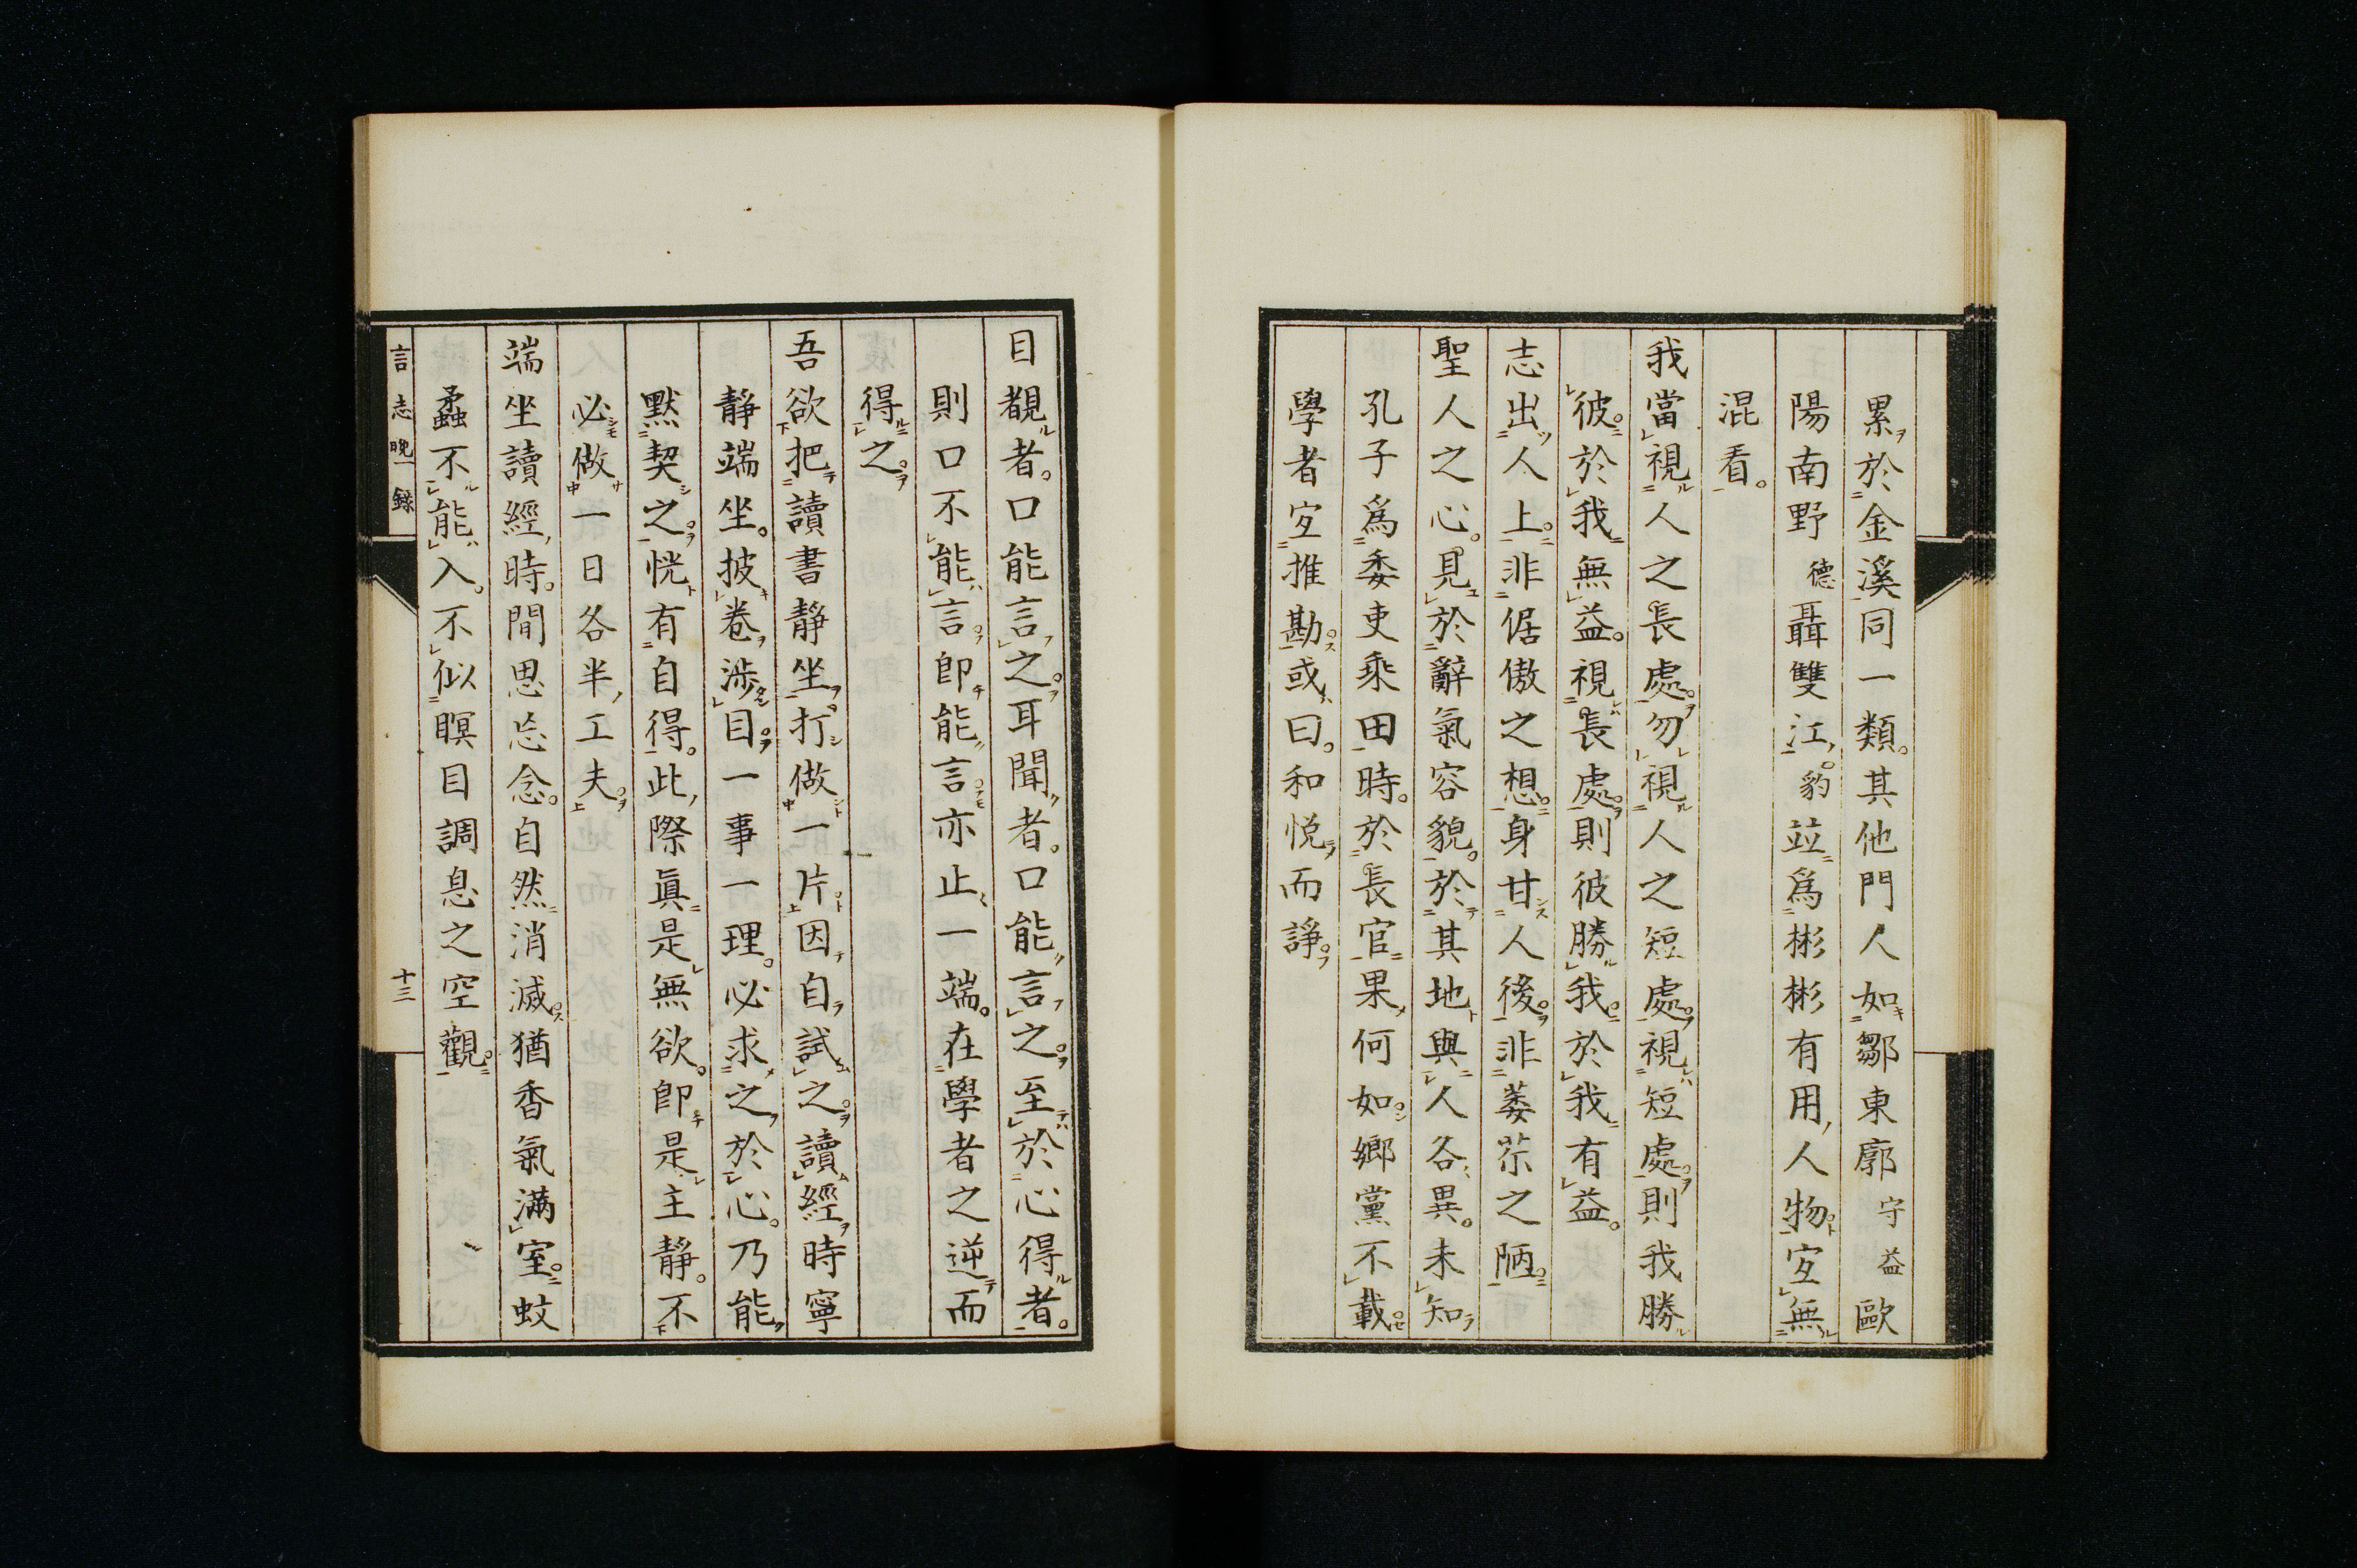 累於金溪同一類其他門人如鄒東廓守益歐
陽南野德聶雙江豹竝爲彬彬有用人物宜無
混看
我當視人之長處勿視人之短處視短處則我勝
彼於我無益視長處則彼勝我於我有益
志出人上非倨傲之想身甘人後非萎苶之陋
聖人之心見於辭氣容貌於其地與人各異未知
孔子爲委吏乘田時於長官果何如鄉黨不載
學者宜推勘或曰和悅而諍
目覩者口能言之耳聞者口能言之至於心得者
則口不能言卽能言亦止一端在學者之逆而
得之
吾欲把讀書靜坐打做一片因自試之讀經時寧
靜端坐披卷涉目一事一理必求之於心乃能
默契之恍有自得此際眞是無欲卽是主靜不
必做一日各半工夫
端坐讀經時閒思忘念自然消滅猶香氣滿室蚊
蟊不能入不似瞑目調息之空觀
言志晚錄
十三